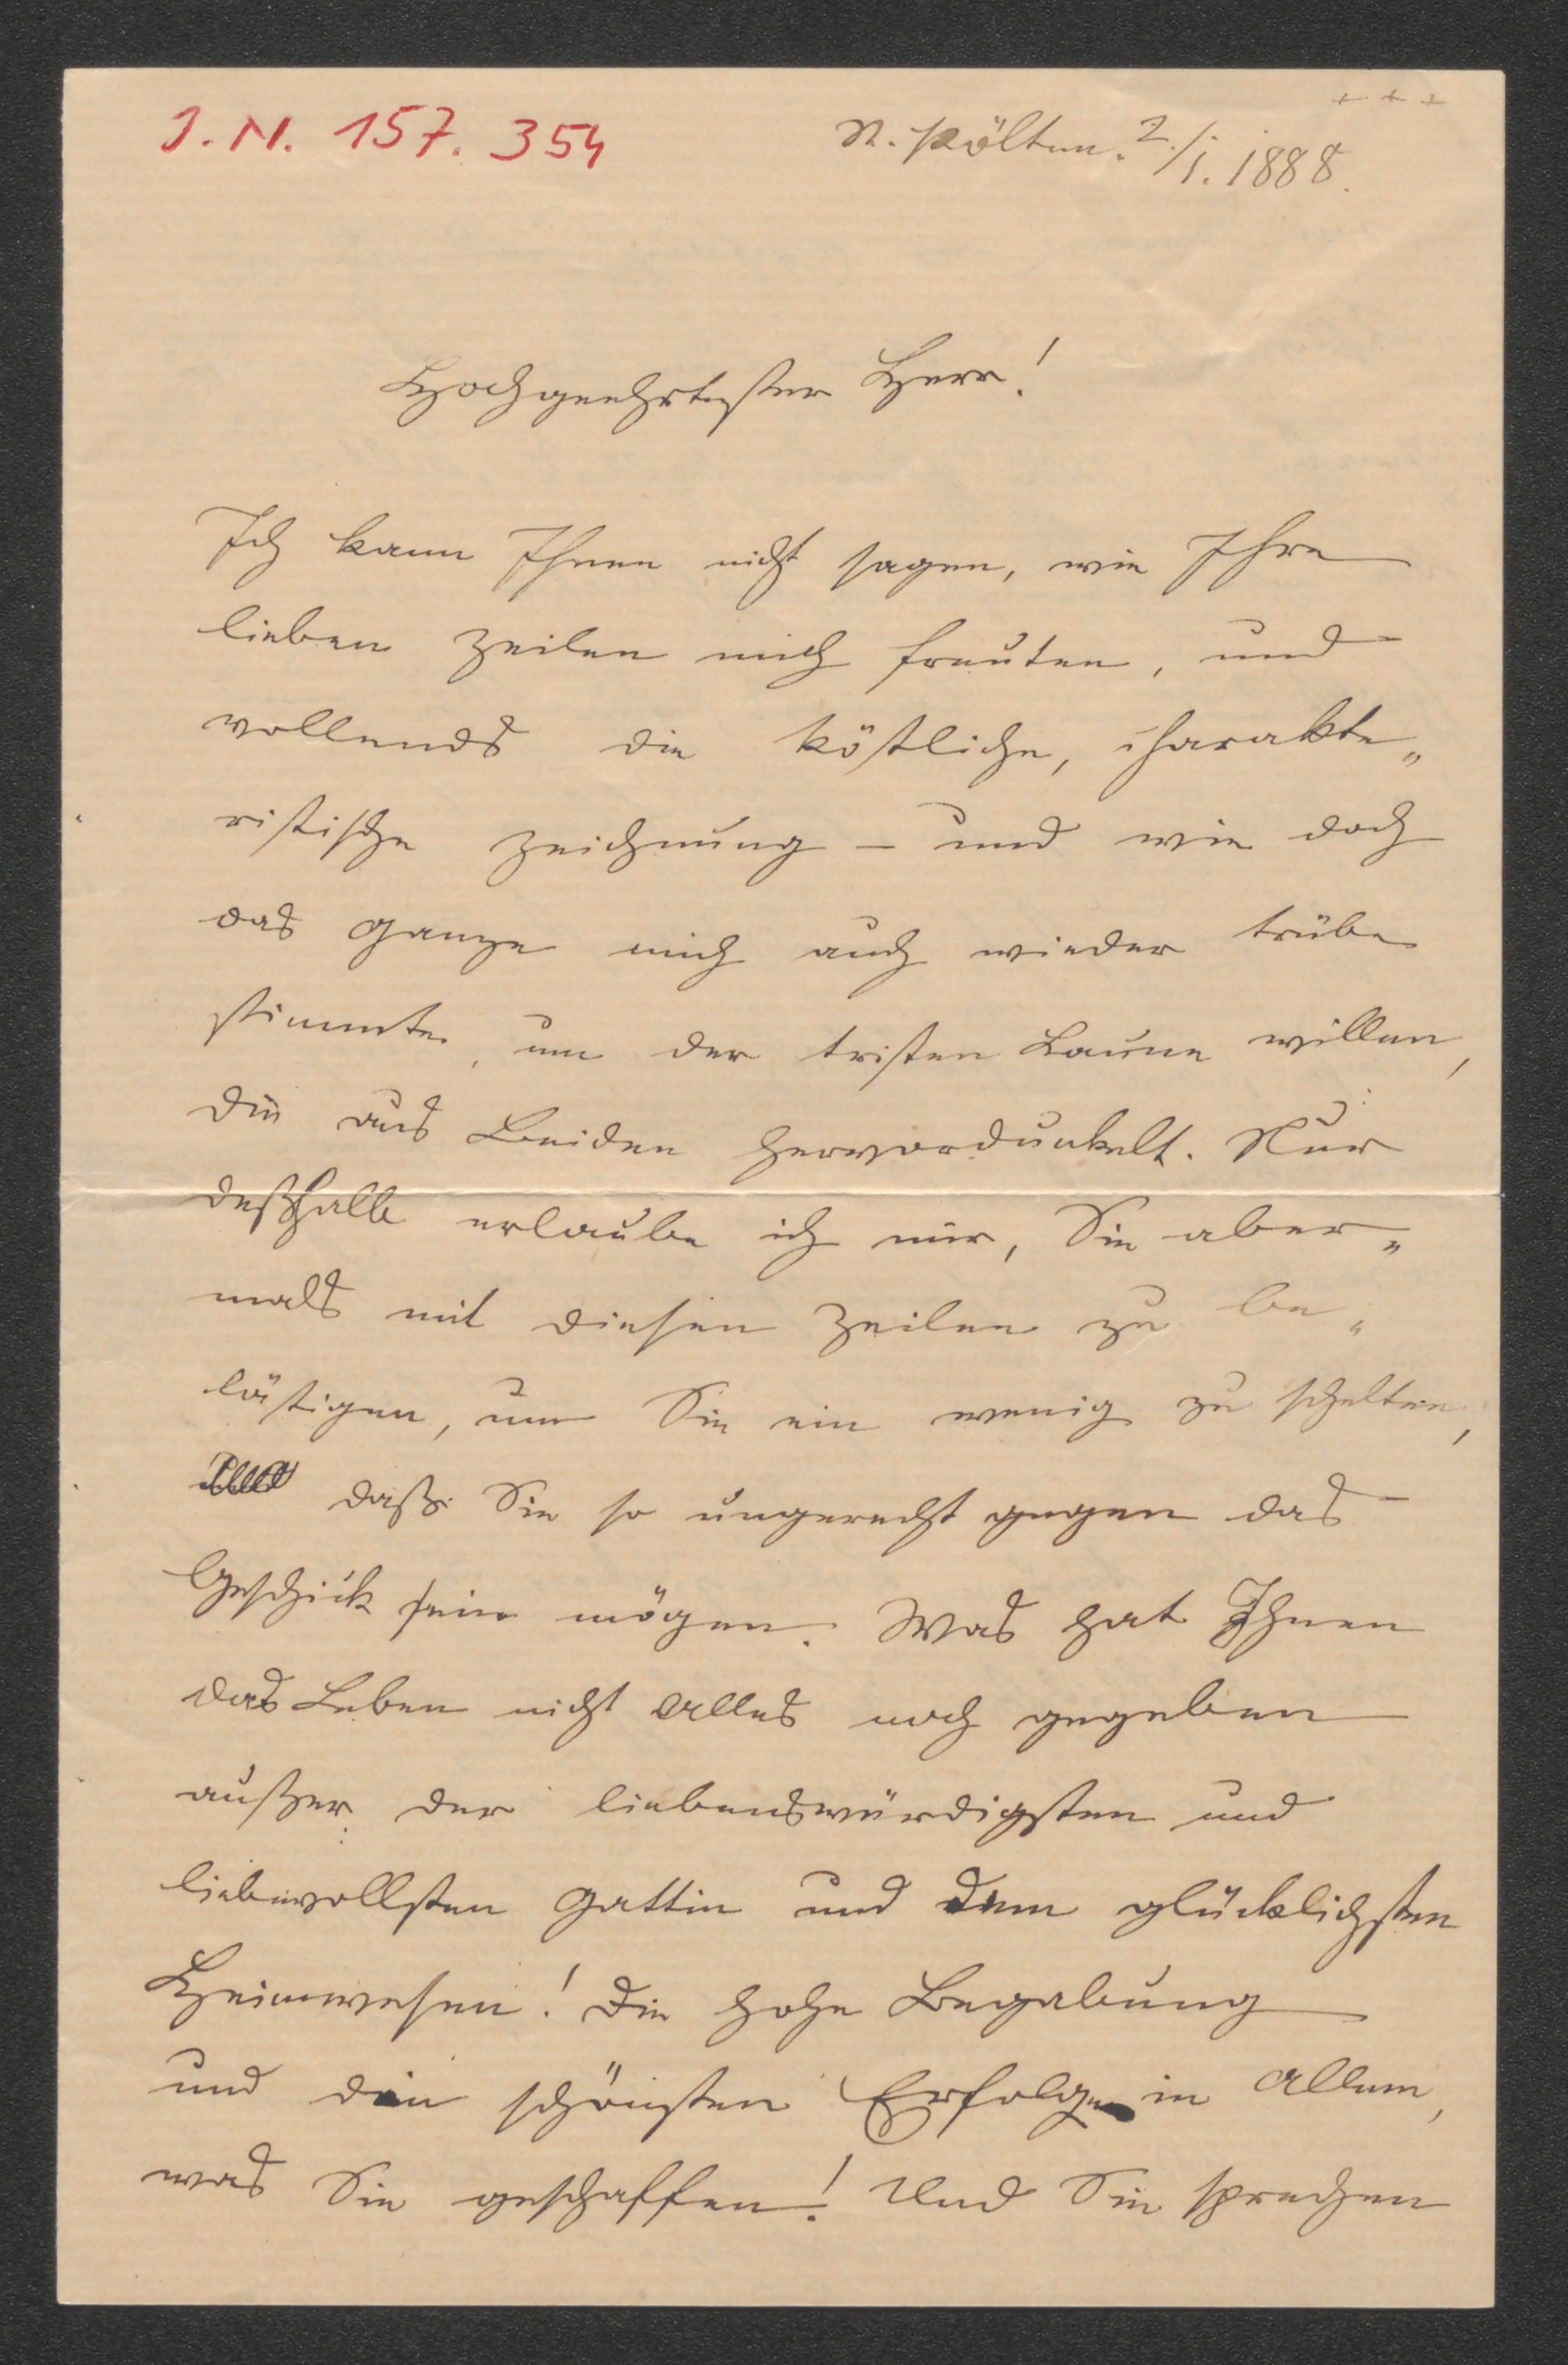 + + +
J. N. 157. 354
St. Pölten. 2./1. 1888.
Hochgeehrtester Herr!
Ich kann Ihnen nicht sagen, wie Ihre
lieben Zeilen mich freuten, und
vollends die köstliche, charakte„
ristische Zeichnung – und wie doch
das Ganze mich auch wieder trübe
stimmte, um der tristen Laune willen,
die aus Beiden hervordunkelt. Nur
deßhalb erlaube ich mir, Sie aber„
mals mit diesen Zeilen zu be„
lästigen, um Sie ein wenig zu schelten,
daß Sie so ungerecht gegen das
Geschick sein mögen. Was hat Ihnen
das Leben nicht Alles noch gegeben
außer der liebenswürdigsten und
liebevollsten Gattin und dem glücklichsten
Heimwesen! Die hohe Begabung
und den schönsten Erfolg in Allem,
was Sie geschaffen! Und Sie sprechen